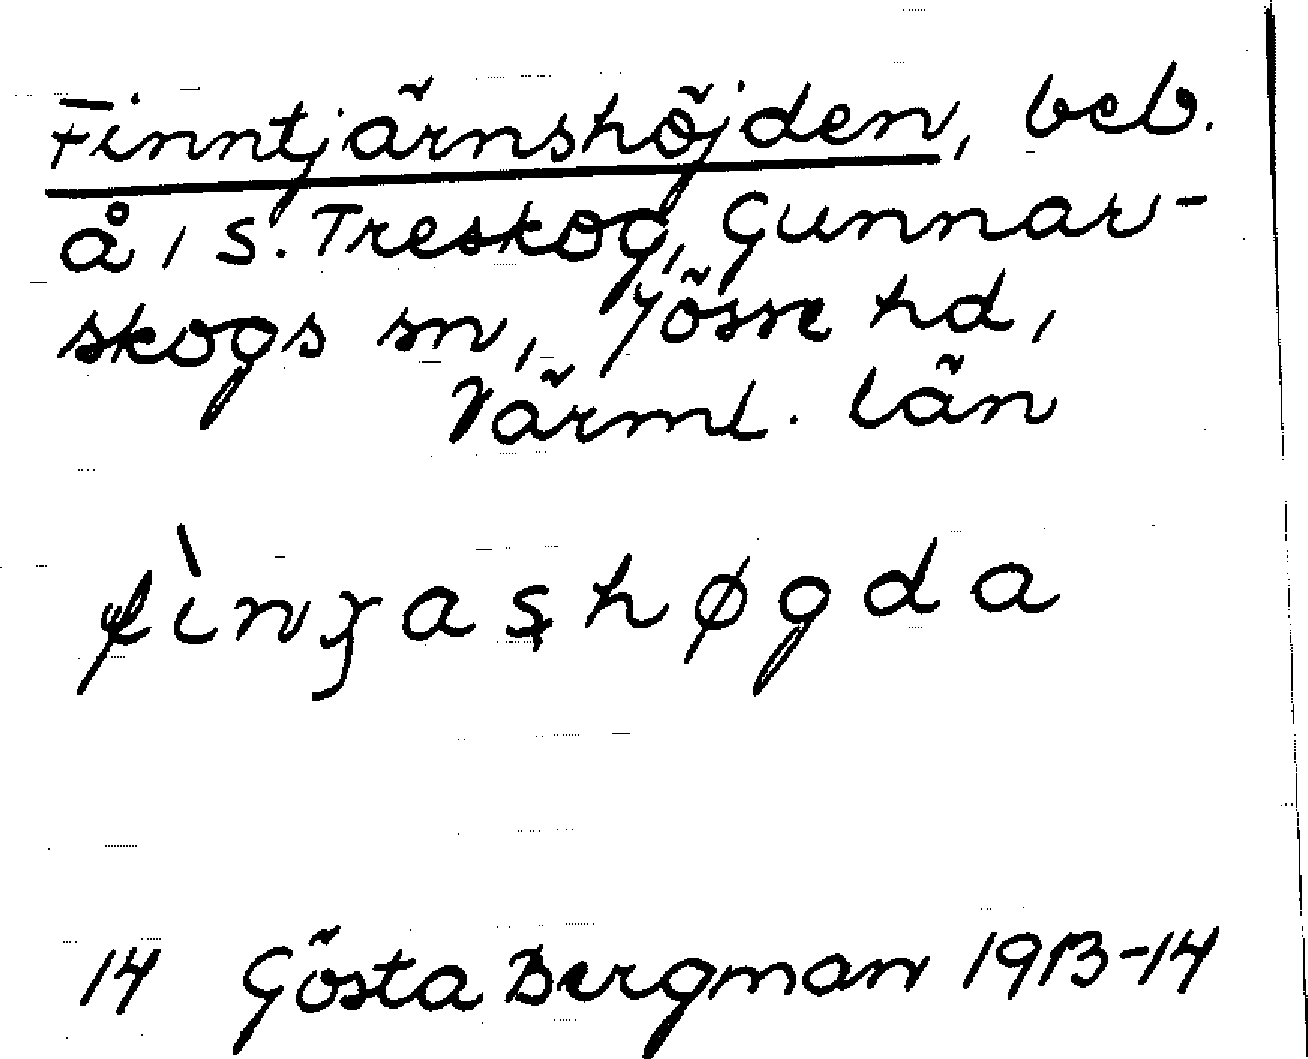 Finntjärnshöjden, beb.
å, S. Treskog, Gunnar-
skogs sn, Jösse hd,
Värml. län
14 Gösta Bergman 1913-14